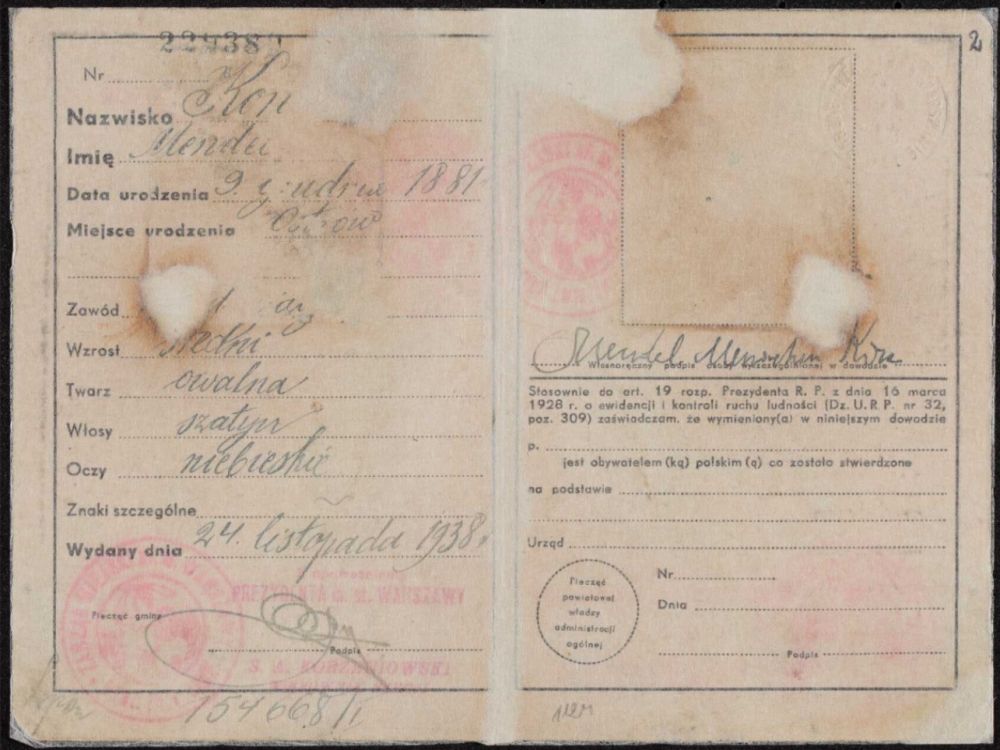 2
Nr
Nazwisko Kon
Imię Mendel
Data urodzenia 9. grudnia 1881
Miejsce urodzenia Ostrów
Zawód
Wzrost średni
Twarz owalna
Włosy szatyn
Oczy niebieskie
Znaki szczególne ~
Wydany dnia 24. listopada 1938.
Z upoważnienia
PREZYDENTA m. st. WARSZAWY
Pieczęć gminy
Podpis
154668/I
Mendel
Własnoręczny podpis osoby wyszczególnionej w dowodzie
Stosownie do art. 19 rozp. Prezydenta R. P. z dnia 16 marca
1928 r. o ewidencji i kontroli ruchu ludności (Dz. U. R. P. nr 32,
poz. 309) zaświadczam, że wymieniony(a) w niniejszym dowodzie
p.
jest obywatelem (ką) polskim (ą) co zostało stwierdzone
na podstawie
Urząd
Pieczęć
powiatowej
władzy
administracji
ogólnej
Nr
Dnia
Podpis